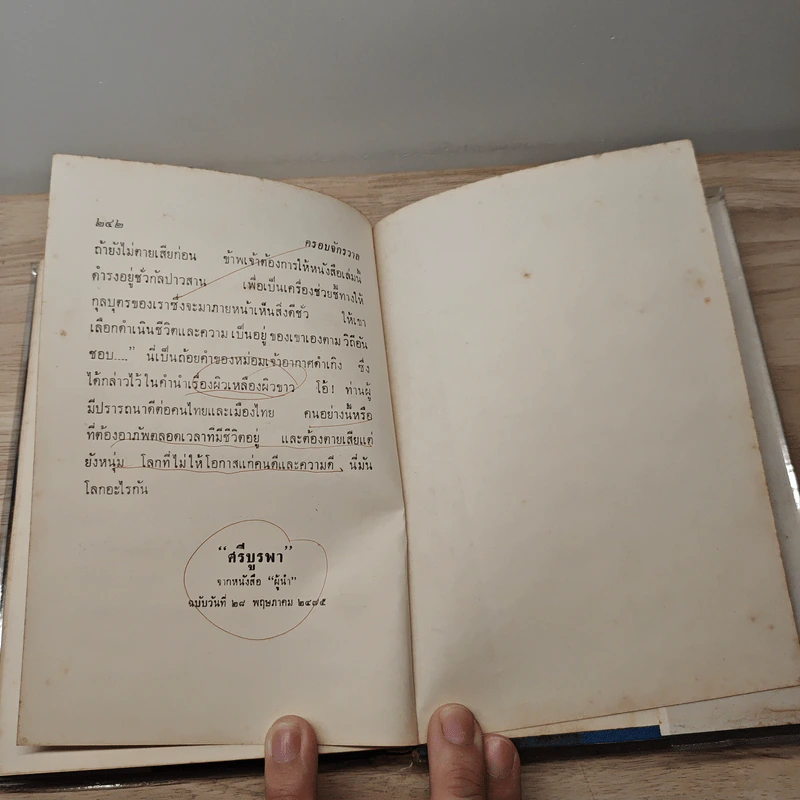 ๒๔๒
ครอบจักรวาล
ถ้ายังไม่ตายเสียก่อน ข้าพเจ้าต้องการให้หนังสือเล่มนี้
ดำรงอยู่ชั่วกัลปาวสาน เพื่อเป็นเครื่องช่วยชี้ทางให้
กุลบุตรของเราซึ่งจะมาภายหน้าเห็นสิ่งดีชั่ว ให้เขา
เลือกดำเนินชีวิตและความเป็นอยู่ของเขาเองตามวิถีอัน
ชอบ....” นี่เป็นถ้อยคำของหม่อมเจ้าอากาศดำเกิง ซึ่ง
ได้กล่าวไว้ในคำนำเรื่องผิวเหลืองผิวขาว โอ้! ท่านผู้
มีปรารถนาดีต่อคนไทยและเมืองไทย คนอย่างนี้หรือ
ที่ต้องอาภัพตลอดเวลาที่มีชีวิตอยู่ และต้องตายเสียแต่
ยังหนุ่ม โลกที่ไม่ให้โอกาสแก่คนดีและความดี นี่มัน
โลกอะไรกัน
“ศรีบูรพา”
จากหนังสือ “ผู้นำ”
ฉบับวันที่ ๒๘ พฤษภาคม ๒๔๗๕